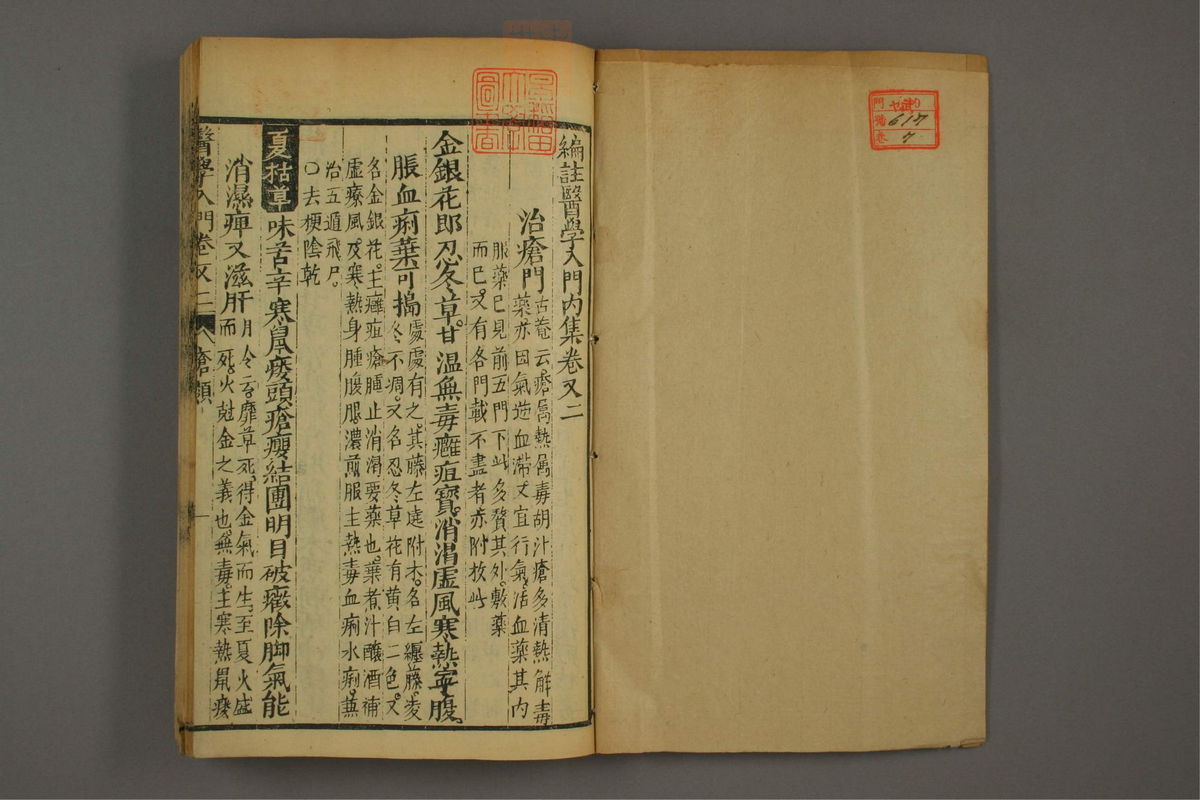 門 ヤ09
號 617
卷 7
編註醫學入門內集卷又二
治瘡門
古菴云瘡属熱属毒胡汁瘡多清熱解毒
藥亦因氣逆血滯又宜行氣活血藥其內
服藥已見前五門下此多贅其外敷藥
而已又有各門載不盡者亦附於此
金銀花郎忍冬草甘溫無毒癰疽寶消渴虛風寒熱寧腹
脹血痢葉可搗
處處有之其藤左遶附木名左纏藤凌
冬不凋又名忍冬草花有黃白二色又
名金銀花主癰疽瘡腫止消渴要藥也葉煮汁釀酒補
虛療風及寒熱身腫腹脹濃煎服主熱毒血痢水痢兼
治五遁飛尸
〇去梗陰乾
夏枯草味苦辛寒鼠瘻頭瘡癭結團明目破癥除脚氣能
消濕痺又滋肝
月令云靡草死得金氣而生至夏火盛
而死火尅金之義也無毒主寒熱鼠瘻
醫學入門卷又二 瘡類 一